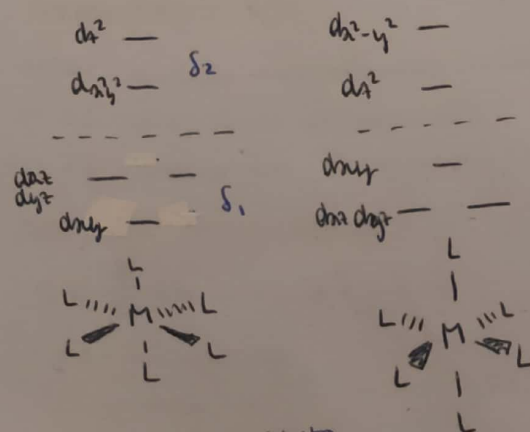 dz²
δ₂
dx²y²
dxz
dyz
δ₁
dxy
L
L L
M
L L
L
dx²-y²
dz²
dxy
dxz dyz
L
L L
M
L L
L